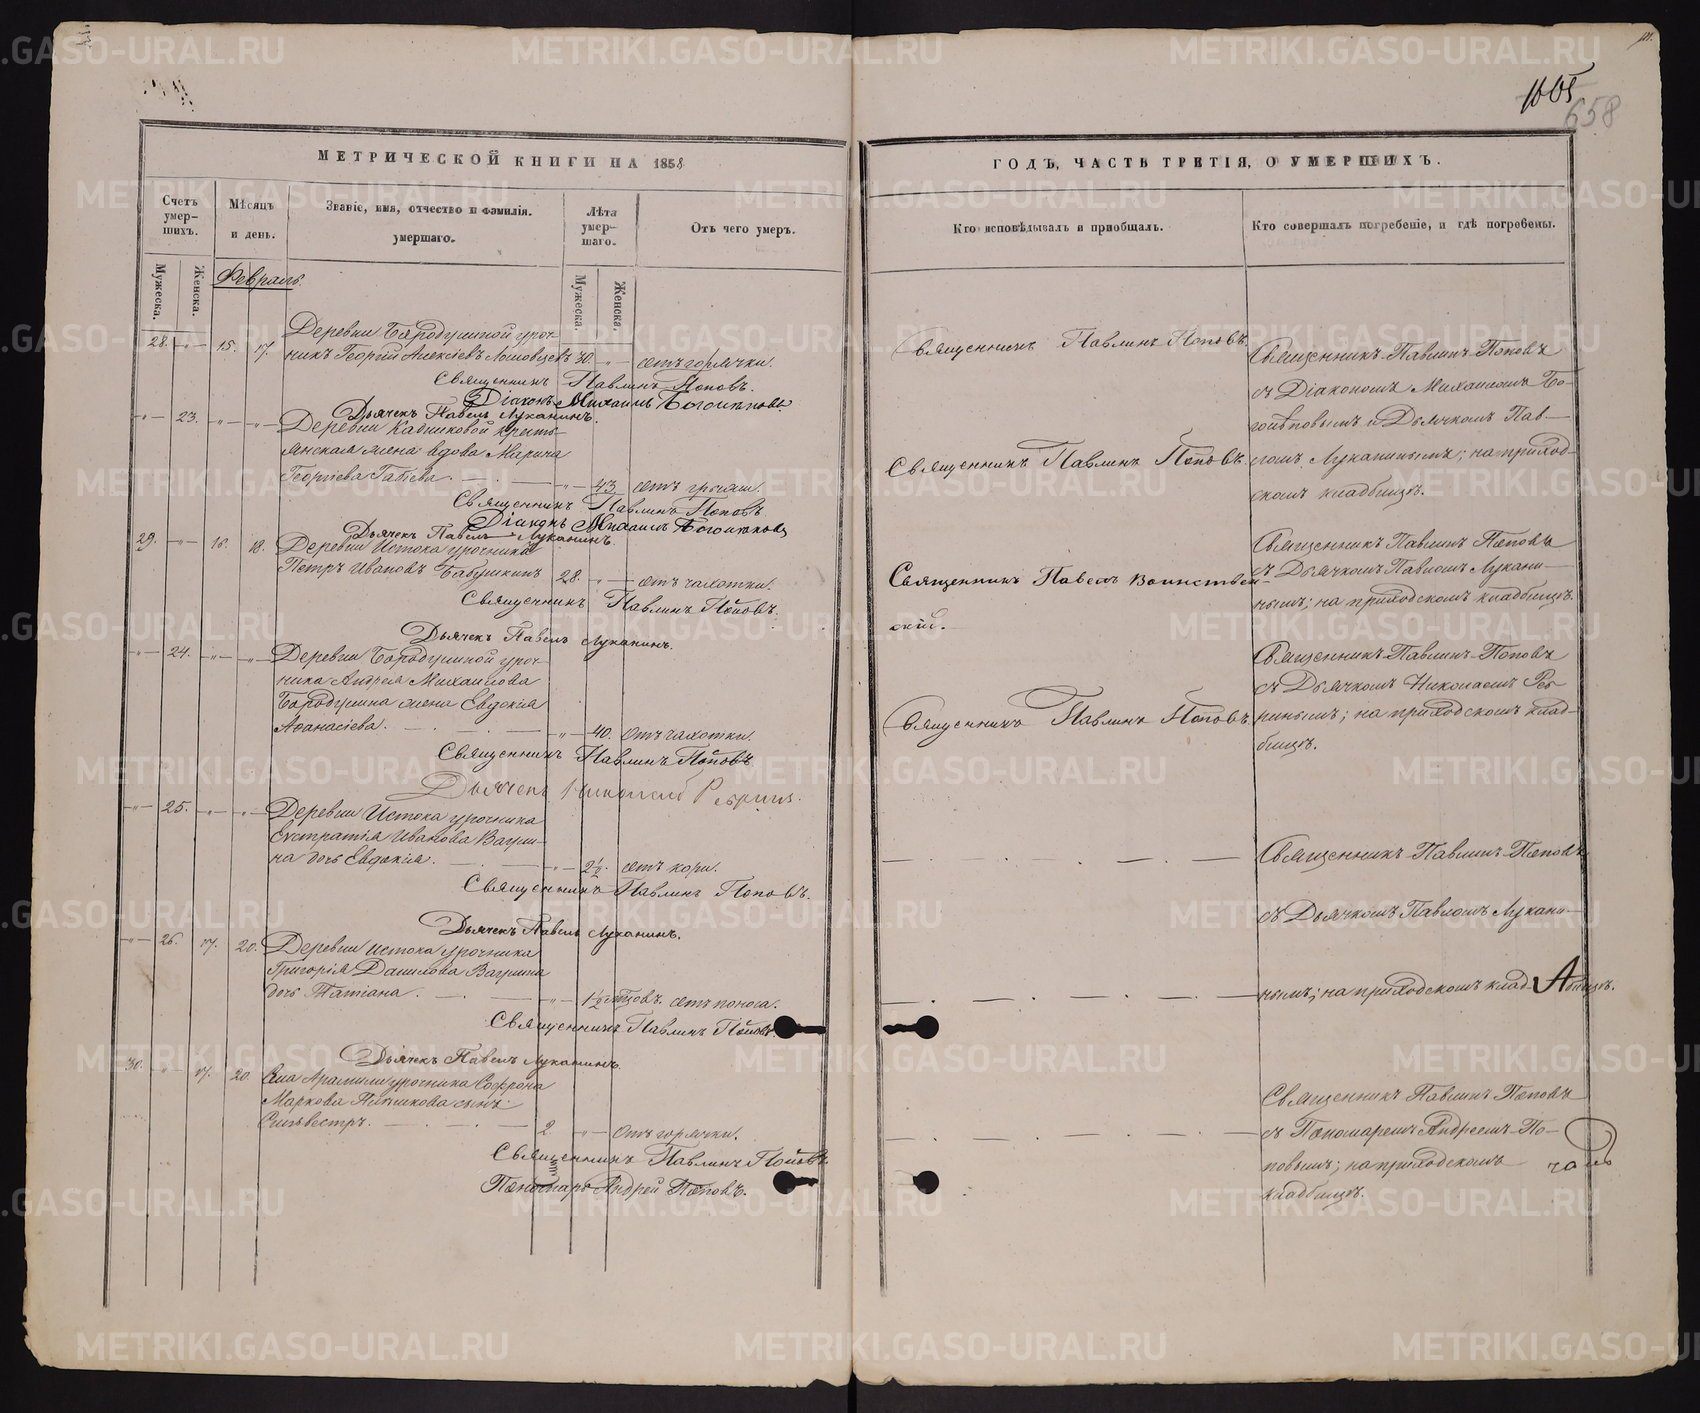 1005
658
МЕТРИЧЕСКОЙ КНИГИ НА 1858
ГОДЪ, ЧАСТЬ ТРЕТІЯ, О УМЕРШИХЪ.
Счетъ умер-
шихъ.
Мѣсяцъ
и день.
Званіе, имя, отчество и фамилія.
умершаго.
Лѣта
умер-
шаго.
Отъ чего умеръ.
Кто исповѣдывалъ и пріобщалъ.
Кто совершалъ погребеніе, и гдѣ погребены.
Мужеска.
Женска.
Февраль.
Мужеска.
Женска.
Деревни Бородулиной уроч-
28. „ 15. 17. никъ Георгій Алексіевъ 30. „ отъ горячки.
Священникъ Павлинъ Поповъ.
Діаконъ Михаилъ
Дьячекъ Павелъ Луканинъ.
„ 23. „ „ Деревни Кадниковой кресть-
янская жена вдова Марина
Георгіева . „ 43
Священникъ Павлинъ Поповъ
Діаконъ Михаилъ
Дьячекъ Павелъ Луканинъ.
29. „ 16. 18. Деревни Истока урочникъ
Петръ Ивановъ Бабушкинъ 28. „ отъ чахотки.
Священникъ Павлинъ Поповъ.
Дьячекъ Павелъ Луканинъ.
„ 24. „ „ Деревни Бородулиной уроч-
ника Андрея Михаилова
Бородулина жена Евдокія
Аѳанасіева. „ 40. отъ чахотки.
Священникъ Павлинъ Поповъ
Дьячекъ Николай Ребринъ.
„ 25. „ „ Деревни Истока урочника
Евстратія Иванова Вагри-
на дочь Евдокія. „ 2½. отъ кори.
Священникъ Павлинъ Поповъ.
Дьячекъ Павелъ Луканинъ.
„ 26. 17. 20. Деревни Истока урочника
Григорія Данилова Вагрина
дочь Татіана. „ 1½ отъ поноса.
Священникъ Павлинъ Поповъ.
Дьячекъ Павелъ Луканинъ.
30. „ 17. 20. Села Арамили урочника Софрона
Маркова сынъ
Сильвестръ. 2. „ отъ горячки.
Священникъ Павлинъ Поповъ.
Пономарь Андрей Поповъ.
Священникъ Павлинъ Поповъ.
Священникъ Павлинъ Поповъ.
Священникъ Павелъ Воинствен-
скій.
Священникъ Павлинъ Поповъ.
Священникъ Павлинъ Поповъ
съ Діакономъ Михаиломъ Бо-
и Дьячкомъ Пав-
ломъ Луканинымъ; на приход-
скомъ кладбищѣ.
Священникъ Павлинъ Поповъ
съ Дьячкомъ Павломъ Лукани-
нымъ; на приходскомъ кладбищѣ.
Священникъ Павлинъ Поповъ
съ Дьячкомъ Николаемъ Реб-
ринымъ; на приходскомъ клад-
бищѣ.
Священникъ Павлинъ Поповъ
съ Дьячкомъ Павломъ Лукани-
нымъ; на приходскомъ кладбищѣ.
Священникъ Павлинъ Поповъ
съ Пономаремъ Андреемъ По-
повымъ; на приходскомъ
кладбищѣ.
METRIKI.GASO-URAL.RU